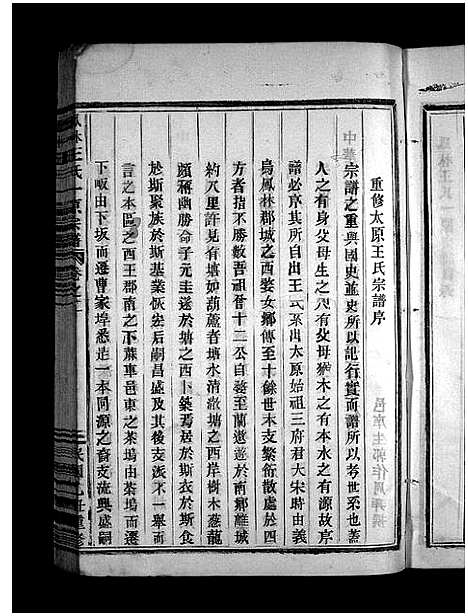 重修太原王氏宗譜序
宗譜之重與國史並史所以記行實而譜所以考世系也蓋
人之有身父母生之人有父母猶木之有本水之有源故序
譜必京其所自出王氏出太原始祖三府君大宋時由義
烏鳳林郡城之西婺女鄉傳至十餘世本支繁衍散處於四
方者指不勝數吾祖晉十二公自義至蘭遨遊於南鄉離城
約八里許見有塘如葫蘆者塘水清澈塘之西岸樹木蓊蘢
頗稱幽勝命子元圭遂於塘之西卜築焉居於斯衣於斯食
於斯聚族於斯基業恢宏后嗣昌盛及其支派不一舉而
言之本區之西王郡南之下蔴車邑東之茶塢由茶塢而遷
下坂由下坂而遷曹家埠悉是一本同源之裔支流興盛嗣